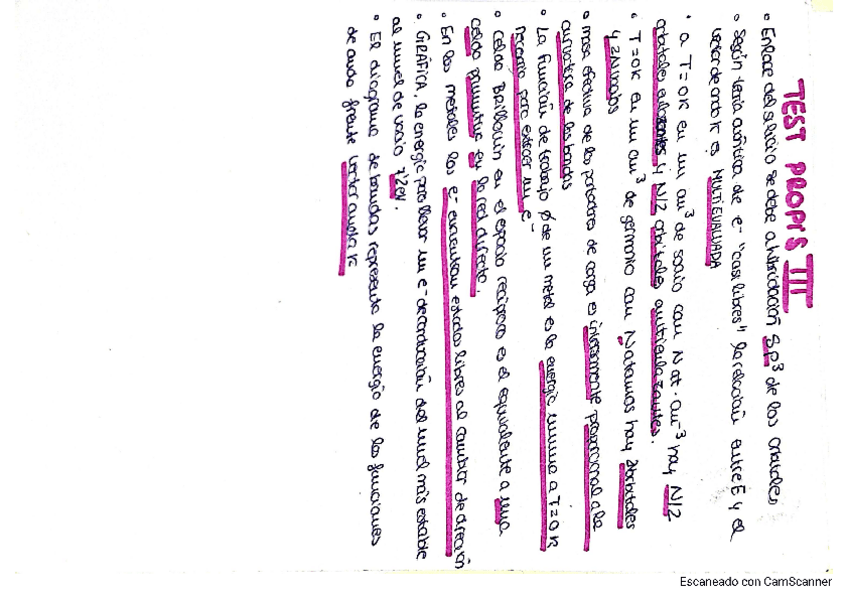 TEST PROPIS III
• Enlace del silicio se debe a hibridación Sp³ de los orbitales
• Según teoría cuántica de e⁻ "casi libres" la relación entre E y el
vector de onda K es MULTIEVALUADA
• a T=0K en un cm³ de sodio con N at·cm⁻³ hay N/2
orbitales enlazantes y N/2 orbitales antienlazantes.
• T=0K en un cm³ de germanio con N átomos hay 2orbitales
y 2N
• masa efectiva de los portadores de carga es inversamente proporcional a la
curvatura de las bandas
• La función de trabajo ø de un metal es la energía mínima a T=0K
necesaria para extraer un e⁻
• Celda Brillouin en el espacio recíproco es el equivalente a una
celda primitiva en la red directa.
• En los metales los e⁻ encuentran estados libres al cambiar de dirección
• GRÁFICA, la energía para llevar un e⁻ de conducción del nivel más estable
al nivel de vacío 7'2eV.
• El diagrama de bandas representa la energía de las funciones
de onda frente vector onda K
Escaneado con CamScanner